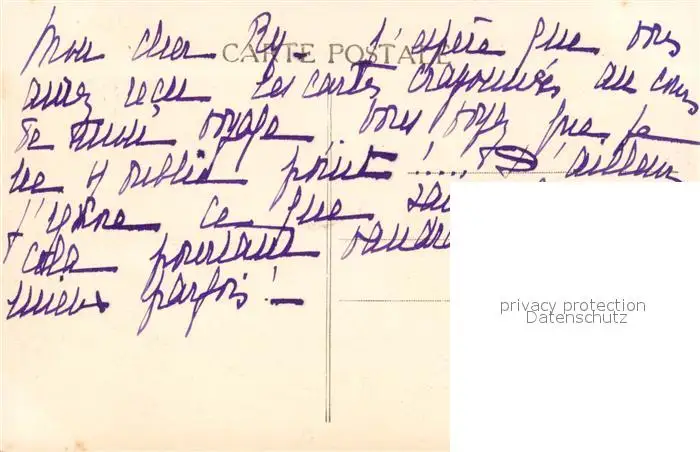 Mon cher By_ J'espère que vous
CARTE POSTALE
aurez reçu les cartes crayonnées au cours
de mon voyage. vous voyez que je
ne oublie point !..... D'ailleurs
j'ignore ce que
cela pourtant vaudra
mieux parfois ! _
privacy protection
Datenschutz